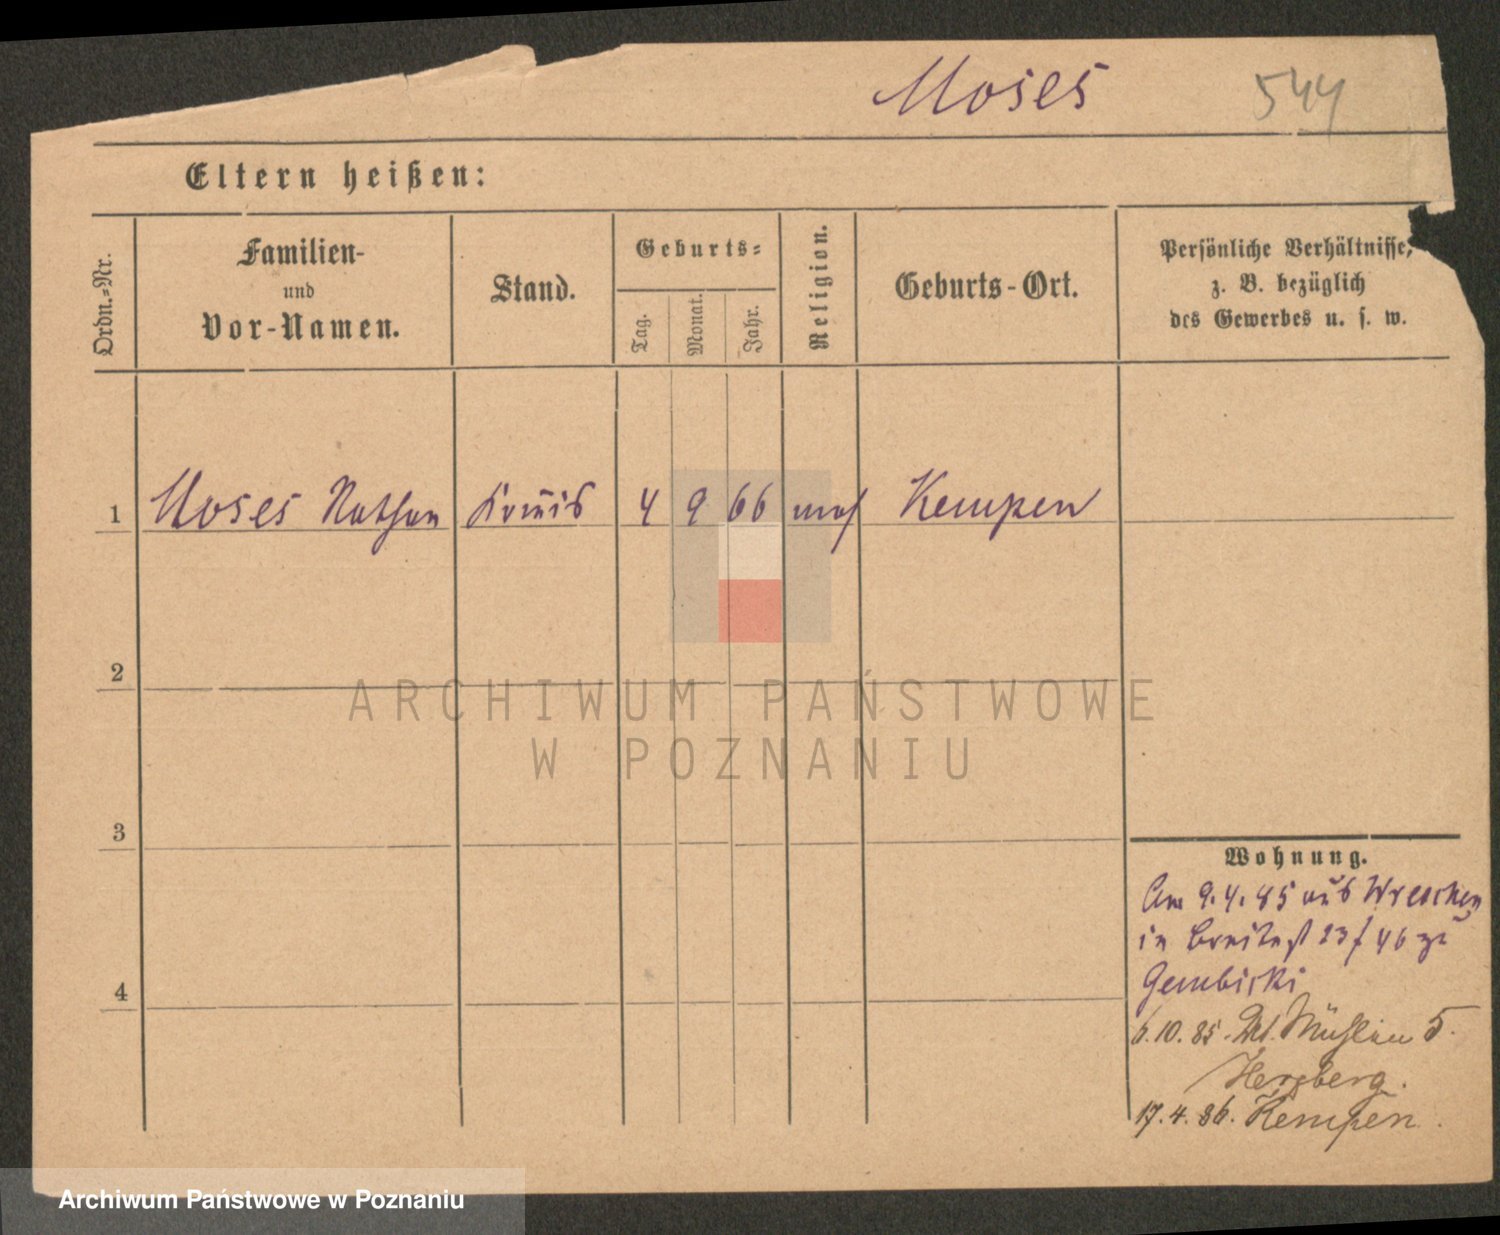 Moses 544
Eltern heißen:
Ordn.-Nr.
Familien-
und
Vor-Namen.
Stand.
Geburts-
Tag.
Monat.
Jahr.
Religion.
Geburts-Ort.
Persönliche Verhältnisse,
z. B. bezüglich
des Gewerbes u. s. w.
1 Moses Nathan Komis 4 9 66 mos Kempen
2
3
4
ARCHIWUM PAŃSTWOWE
W POZNANIU
Wohnung.
Am 9.4.85 aus Wreschen
in Breitest 23/46 zu
Gembicki
6.10.85. Mühlen 5.
Herzberg.
17.4.86. Kempen.
Archiwum Państwowe w Poznaniu